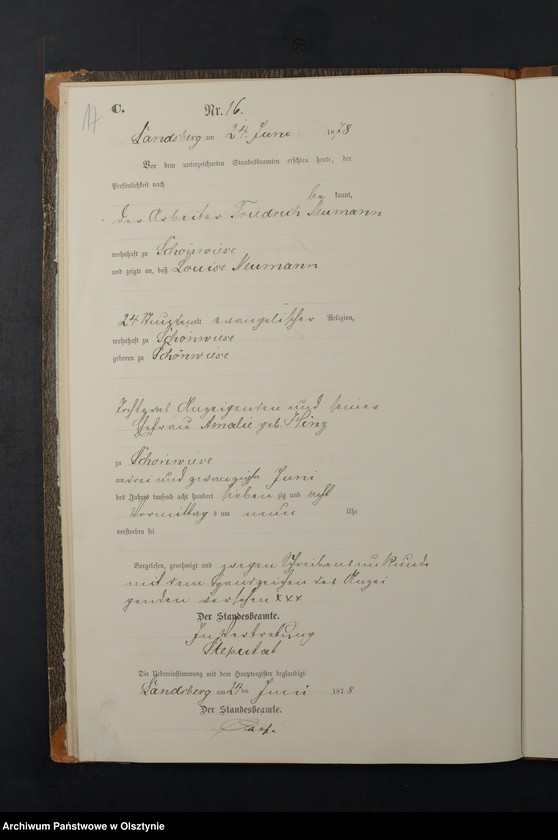 17
C.
Nr. 16.
Landsberg am 24 Juni 1878
Von dem unterzeichneten Standesbeamten erschien heute, der
Persönlichkeit nach
be kannt,
der Arbeiter Friedrich Neumann
wohnhaft zu Schönwiese
und zeigte an, daß Louise Neumann
24 alt evangelischer Religion,
wohnhaft zu Schönwiese
geboren zu Schönwiese
Tochter des Anzeigenden und seiner
Ehefrau Amalie geb. Hinz
zu Schönwiese
am drei und zwanzigsten Juni
des Jahres tausend acht hundert sieben zig und acht
Vormittags um neun Uhr
verstorben sei
Vorgelesen, genehmigt und wegen Schreibensunkunde
mit dem Handzeichen des Anzei
genden versehen XXX
Der Standesbeamte.
In Vertretung
Die Uebereinstimmung mit dem Hauptregister beglaubigt.
Landsberg am 24 ten Juni 1878
Der Standesbeamte.
Archiwum Państwowe w Olsztynie